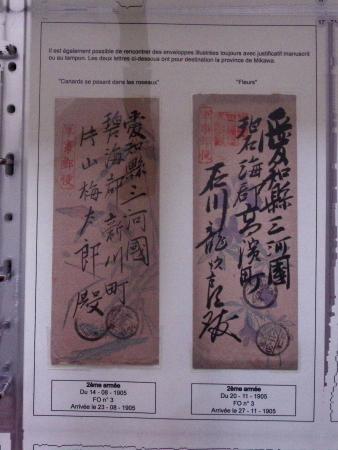 Il est également possible de rencontrer des enveloppes illustrées toujours avec justificatif manuscrit
ou au tampon. Les deux lettres ci-dessous ont pour destination la province de Mikawa.
"Canards se posant dans les roseaux"
"Fleurs"
愛知縣三河國
碧海郡新川町
片山梅太郎殿
軍事郵便
愛知縣三河國
碧海郡高濱町
石川
2ème armée
Du 14 - 08 - 1905
FO n° 3
Arrivée le 23 - 08 - 1905
2ème armée
Du 20 - 11 - 1905
FO n° 3
Arrivée le 27 - 11 - 1905